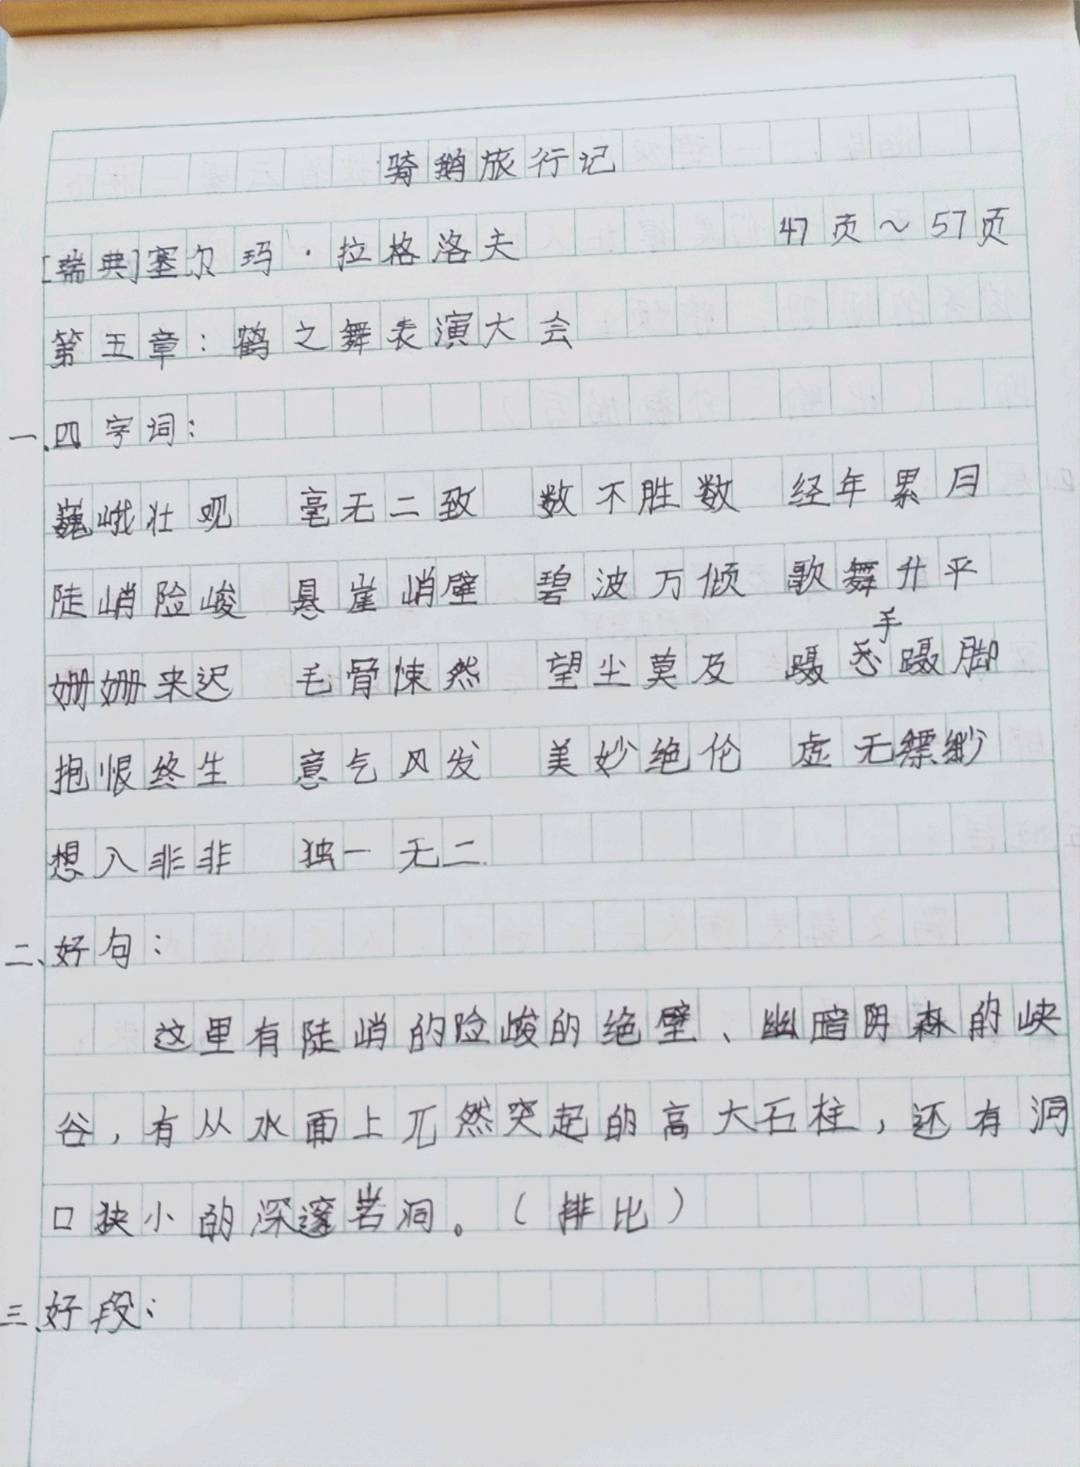 骑鹅旅行记
[瑞典]塞尔玛·拉格洛夫 47页～57页
第五章：鹤之舞表演大会
一、四字词：
巍峨壮观 毫无二致 数不胜数 经年累月
陡峭险峻 悬崖峭壁 碧波万倾 歌舞升平
姗姗来迟 毛骨悚然 望尘莫及 蹑手蹑脚
抱恨终生 意气风发 美妙绝伦 虚无缥缈
想入非非 独一无二
二、好句：
这里有陡峭的险峻的绝壁、幽暗阴森的峡
谷，有从水面上兀然突起的高大石柱，还有洞
口狭小的深邃岩洞。（排比）
三、好段：